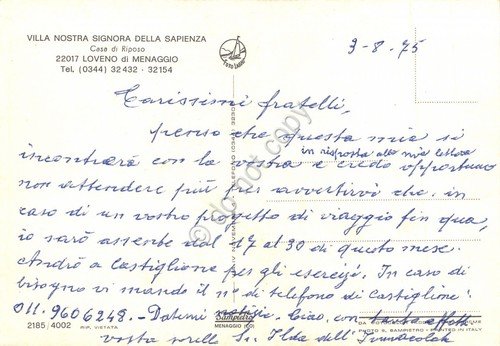 VILLA NOSTRA SIGNORA DELLA SAPIENZA
Casa di Riposo
22017 LOVENO di MENAGGIO
Tel. (0344) 32432 - 32154
3-8-75
Carissimi fratelli,
penso che questa mia si
incontrerà con la vostra in risposta alla mia lettera e credo opportuno
non attendere più per avvertirvi che in
caso di un vostro progetto di viaggio fin qua,
io sarò assente dal 17 al 30 di questo mese.
Andrò a Castiglione per gli esercizi. In caso di
bisogno vi mando il n° di telefono di Castiglione:
011.9606248. - Datemi notizie. Ciao, con tanto affetto
vostra sorella Sr. Ilda dell'Immacolata
2185/4002 RIP. VIETATA
Sampietro
MENAGGIO (CO)
PHOTO R. SAMPIETRO - PRINTED IN ITALY
do not copy